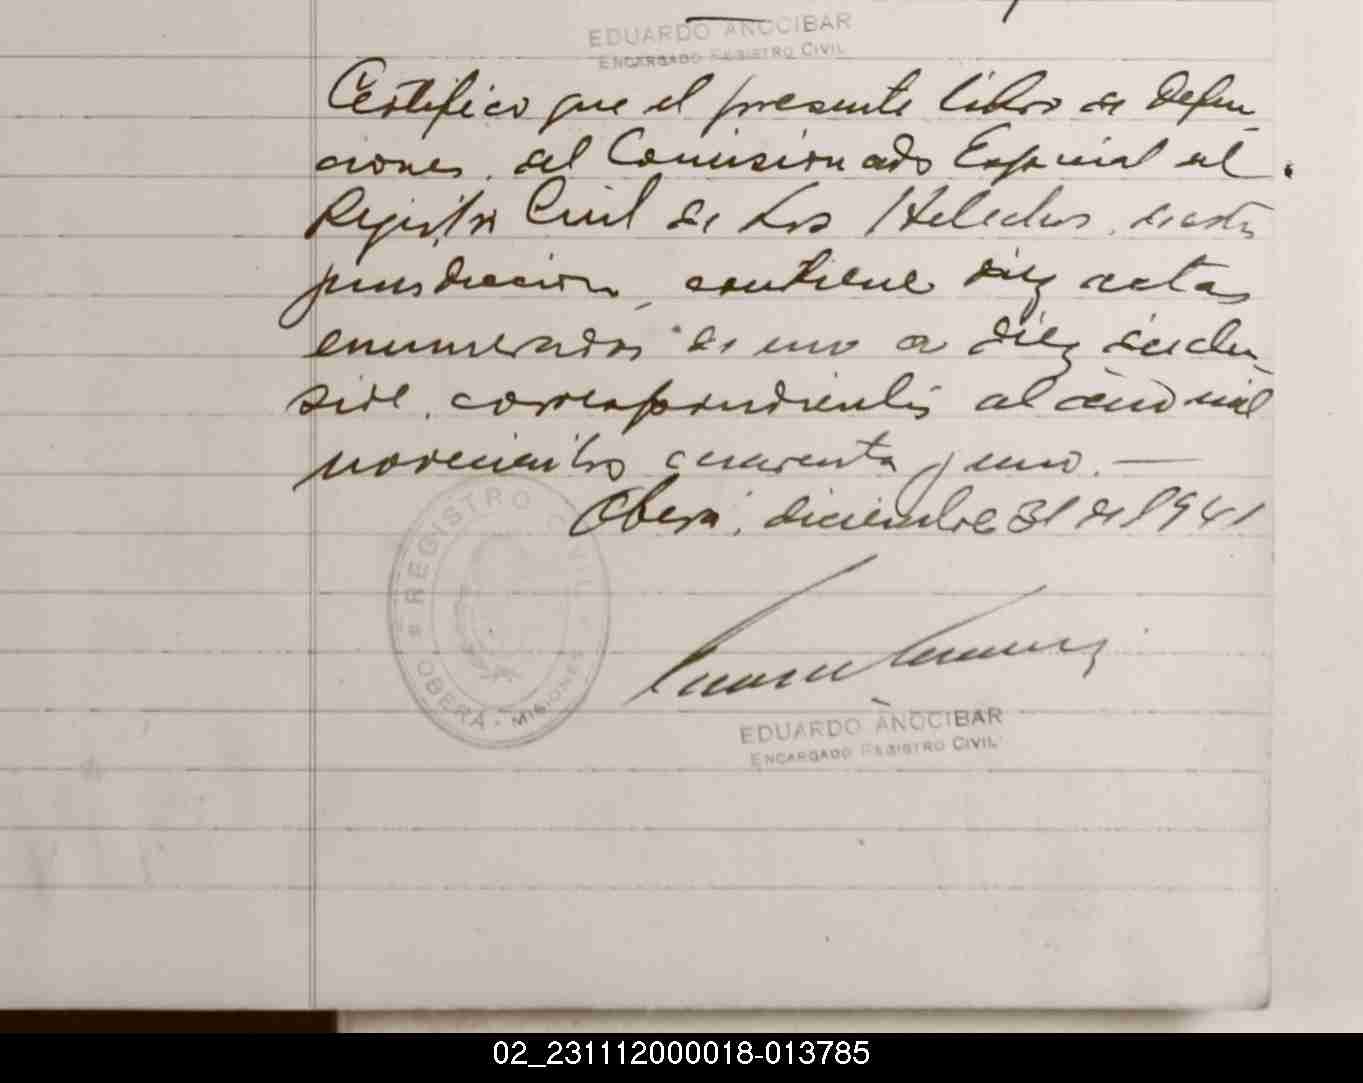 EDUARDO ANOCIBAR
ENCARGADO REGISTRO CIVIL
Certifico que el presente libro de defun
ciones, del Comisionado Especial del
Registro Civil de Los Helechos, de esta
jurisdiccion, contiene diez actas
enumeradas de uno a diez inclu
sive, correspondientes al año mil
novecientos cuarenta y uno. —
Oberá, diciembre 31 de 1941
REGISTRO CIVIL
OBERÁ - MISIONES
EDUARDO ANOCIBAR
ENCARGADO REGISTRO CIVIL
02_231112000018-013785